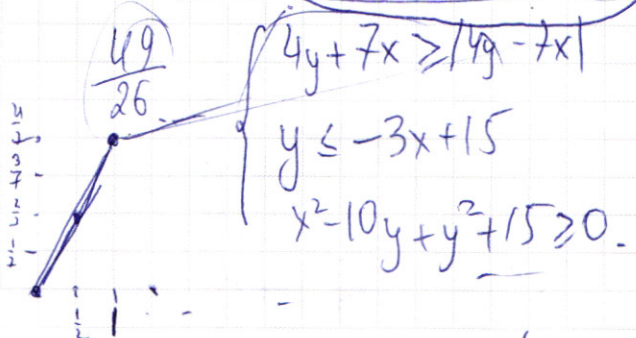 49/26
4y+7x ≥ |4y-7x|
y ≤ -3x+15
x²-10y+y²+15 ≥ 0.
4/7
3/7
2/7
1/7
1/2 1